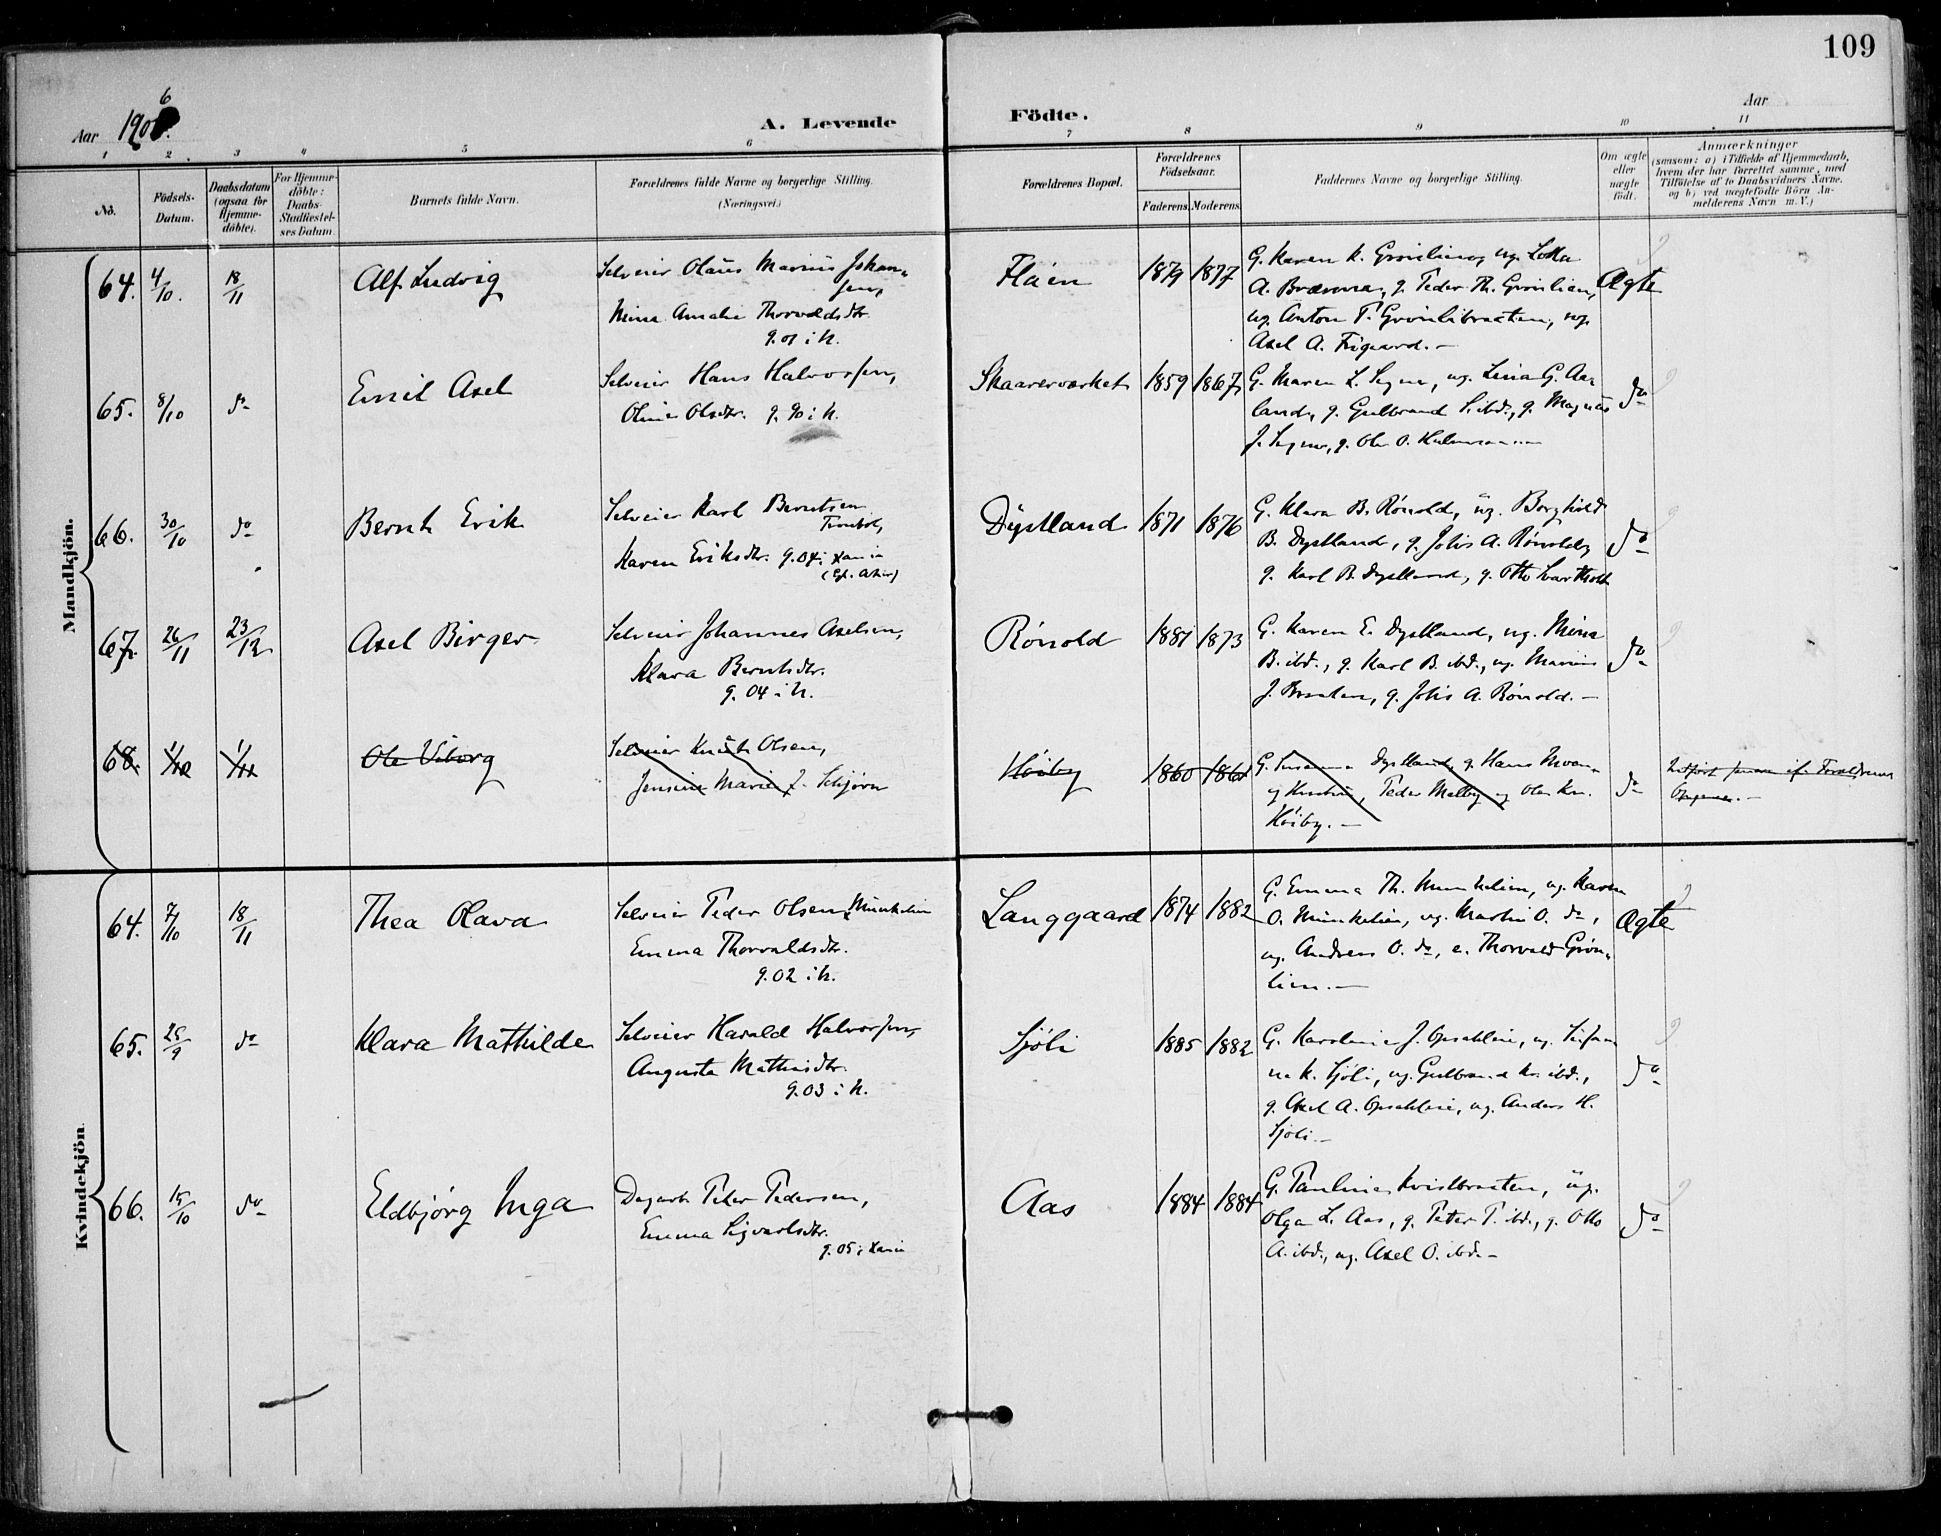 109
Aar 1906.
A. Levende Födte.
Aar
1 2 3 4 5 6 7 8 9 10 11
No.
Födsels-Datum.
Daabsdatum (ogsaa for Hjemme-döbte).
For Hjemme-döbte: Daabs-Stadfæstel-ses Datum.
Barnets fulde Navn.
Forældrenes fulde Navne og borgerlige Stilling. (Næringsvei.)
Forældrenes Bopæl.
Forældrenes Födselsaar.
Faderens. Moderens.
Faddernes Navne og borgerlige Stilling.
Om ægte eller uægte födt.
Anmærkninger
(saasom: a) i Tilfælde af Hjemmedaab,
hvem der har forrettet samme, med
Tilföielse af to Daabsvidners Navne.
og b) ved uægtefödte Börn An-
melderens Navn m. V.)
Mandkjön.
64. 4/10. 18/11 Alf Ludvig
Selveier Olaus Marius Johan-
sen,
Mina Amalie Thorvaldsdtr.
g. 01 i h.
Flåen 1879 1877
G. Karen K. Grönlien, ug. Lotta
A. Brænna, g. Peder Th. Grönlien,
ug. Anton P. Grönlibraaten, ug.
Axel A. Frigaard. —
Ægte
65. 8/10 do Emil Axel
Selveier Hans Halvorsen,
Oline Olsdtr. g. 90 i h.
Skaarerværket 1859 1867
G. Maren L. Segne, ug. Lina G. Aa-
land, g. Gulbrand S. ibd., g. Magnus
J. Segne, g. Ole O.
do
66. 30/10 do Bernt Erik
Selveier Karl Berntsen
Karen Eriksdtr. g. 04 i Xania
(Gl. Aker)
Dystland 1871 1876
G. Klara B. Rönold, ug. Borghild
B. Dystland, g. Johs A. Rönold,
g. Karl B. Dystland, g. Otto Svartholt
do
67. 26/11 23/12 Axel Birger
Selveier Johannes Axelsen,
Klara Berntsdtr.
g. 04 i h.
Rönold 1881 1873
G. Karen E. Dystland, ug. Mina
B. ibd., g. Karl B. ibd., ug. Marius
J. Braaten, g. Johs A. Rönold. —
do
68. 1/12 1/12 Ole Viborg
Selveier Knut Olsen,
Jensine Marie J. Schjörn
Höiby 1860 1861
G. Susanna Dystland, g. Hans Moan
og Kristine, Peder Melby og Ole Kn.
Höiby. —
do
Kvindekjön.
64. 7/10 18/11 Thea Olava
Selveier Peder Olsen Munkelien
Emma Thorvaldsdtr.
g. 02 i h.
Langgaard 1874 1882
G. Emma Th. Munkelien, ug. Karen
O. Munkelien, ug. Martin O. do,
ug. Andreas O. do, e. Thorvald Grön-
lien. —
Ægte
65. 25/9 do Klara Mathilde
Selveier Harald Halvorsen,
Augusta Mathisdtr.
g. 03 i h.
Sjöli 1885 1882
G. Karoline J. Opsahlien, ug. Susan-
na K. Sjöli, ug. Gulbrand Kr. ibd.,
g. Axel A. Opsahlien, ug. Anders H.
Sjöli. —
do
66. 15/10 do Eldbjørg Inga
Dagarb. Peter Pedersen,
Emma Sigvartsdtr.
g. 05 i Xania
Aas 1884 1884
G. Pauline Kvistbraaten, ug.
Olga L. Aas, g. Peter P. ibd., g. Otto
A. ibd., ug. Axel O. ibd. —
do